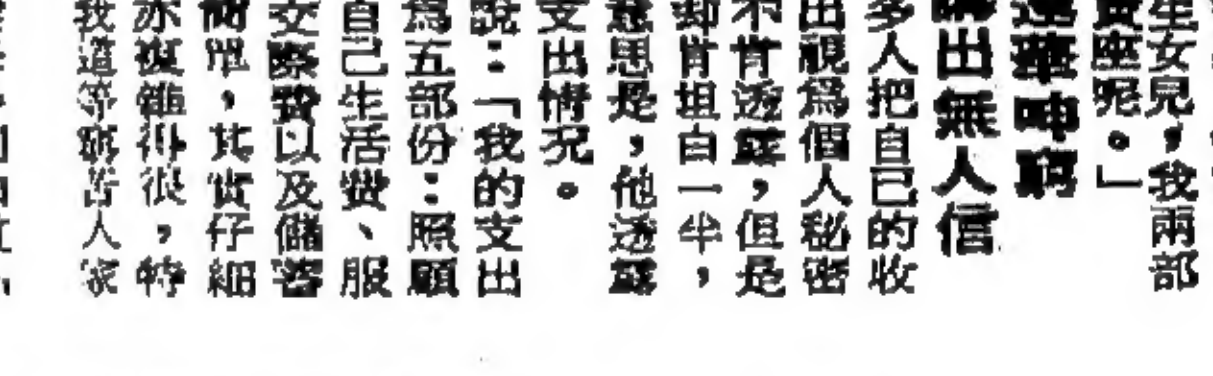 生女兒，我兩部
寶座呢。」
蓮華呻窮
出無人信
多人把自己的收
出視爲個人秘密
不肯透露，但是
却肯坦白一半，
意思是，他透露
支出情況。
說：「我的支出
爲五部份：照顧
自己生活費、服
交際費以及儲蓄
簡單，其實仔細
亦複雜得很，特
我道等窮苦人家